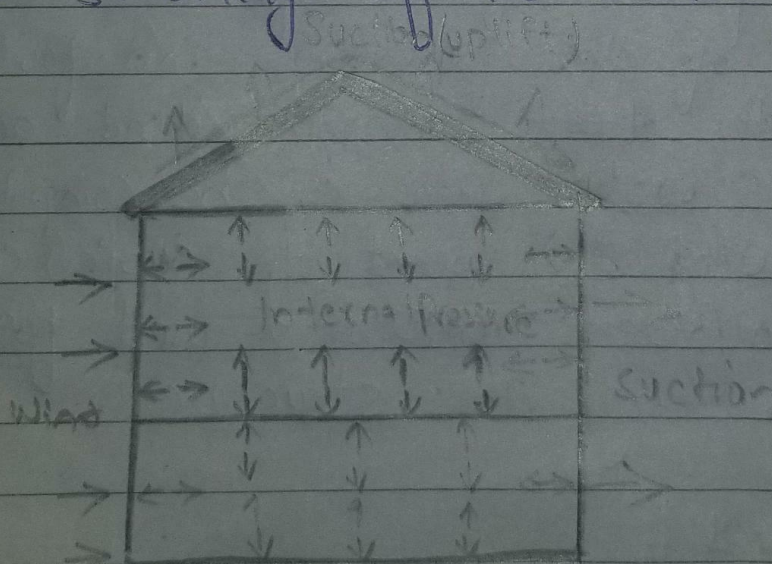 Suction (uplift)
Internal Pressure
Wind
Suction